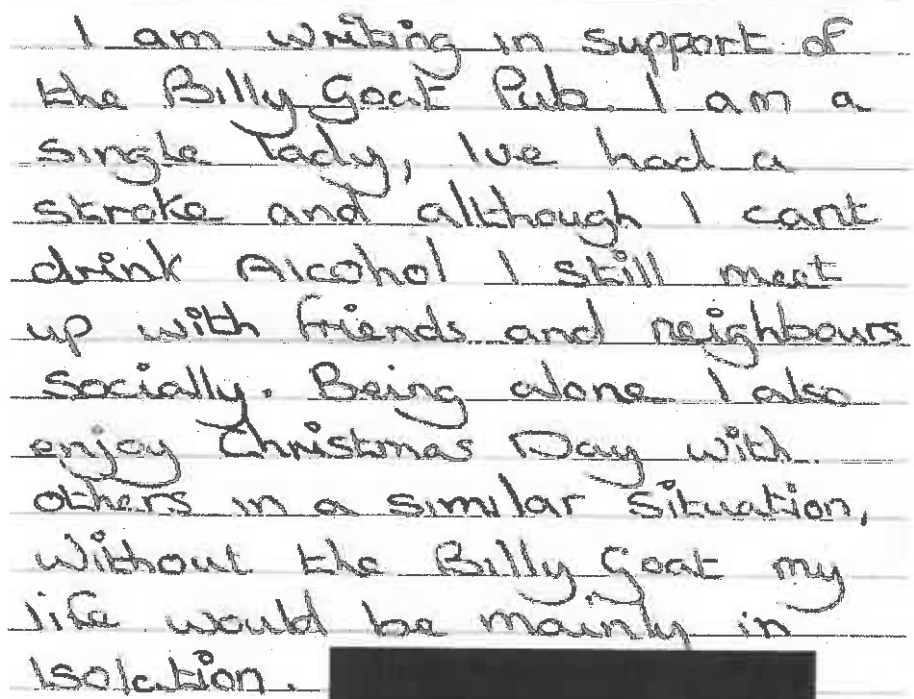 I am writing in support of
the Billy Goat Pub. I am a
single lady, Ive had a
stroke and although I cant
drink Alcohol I still meet
up with friends and neighbours
socially. Being alone I also
enjoy Christmas Day with
others in a similar situation,
without the Billy Goat my
life would be mainly in
Isolation.